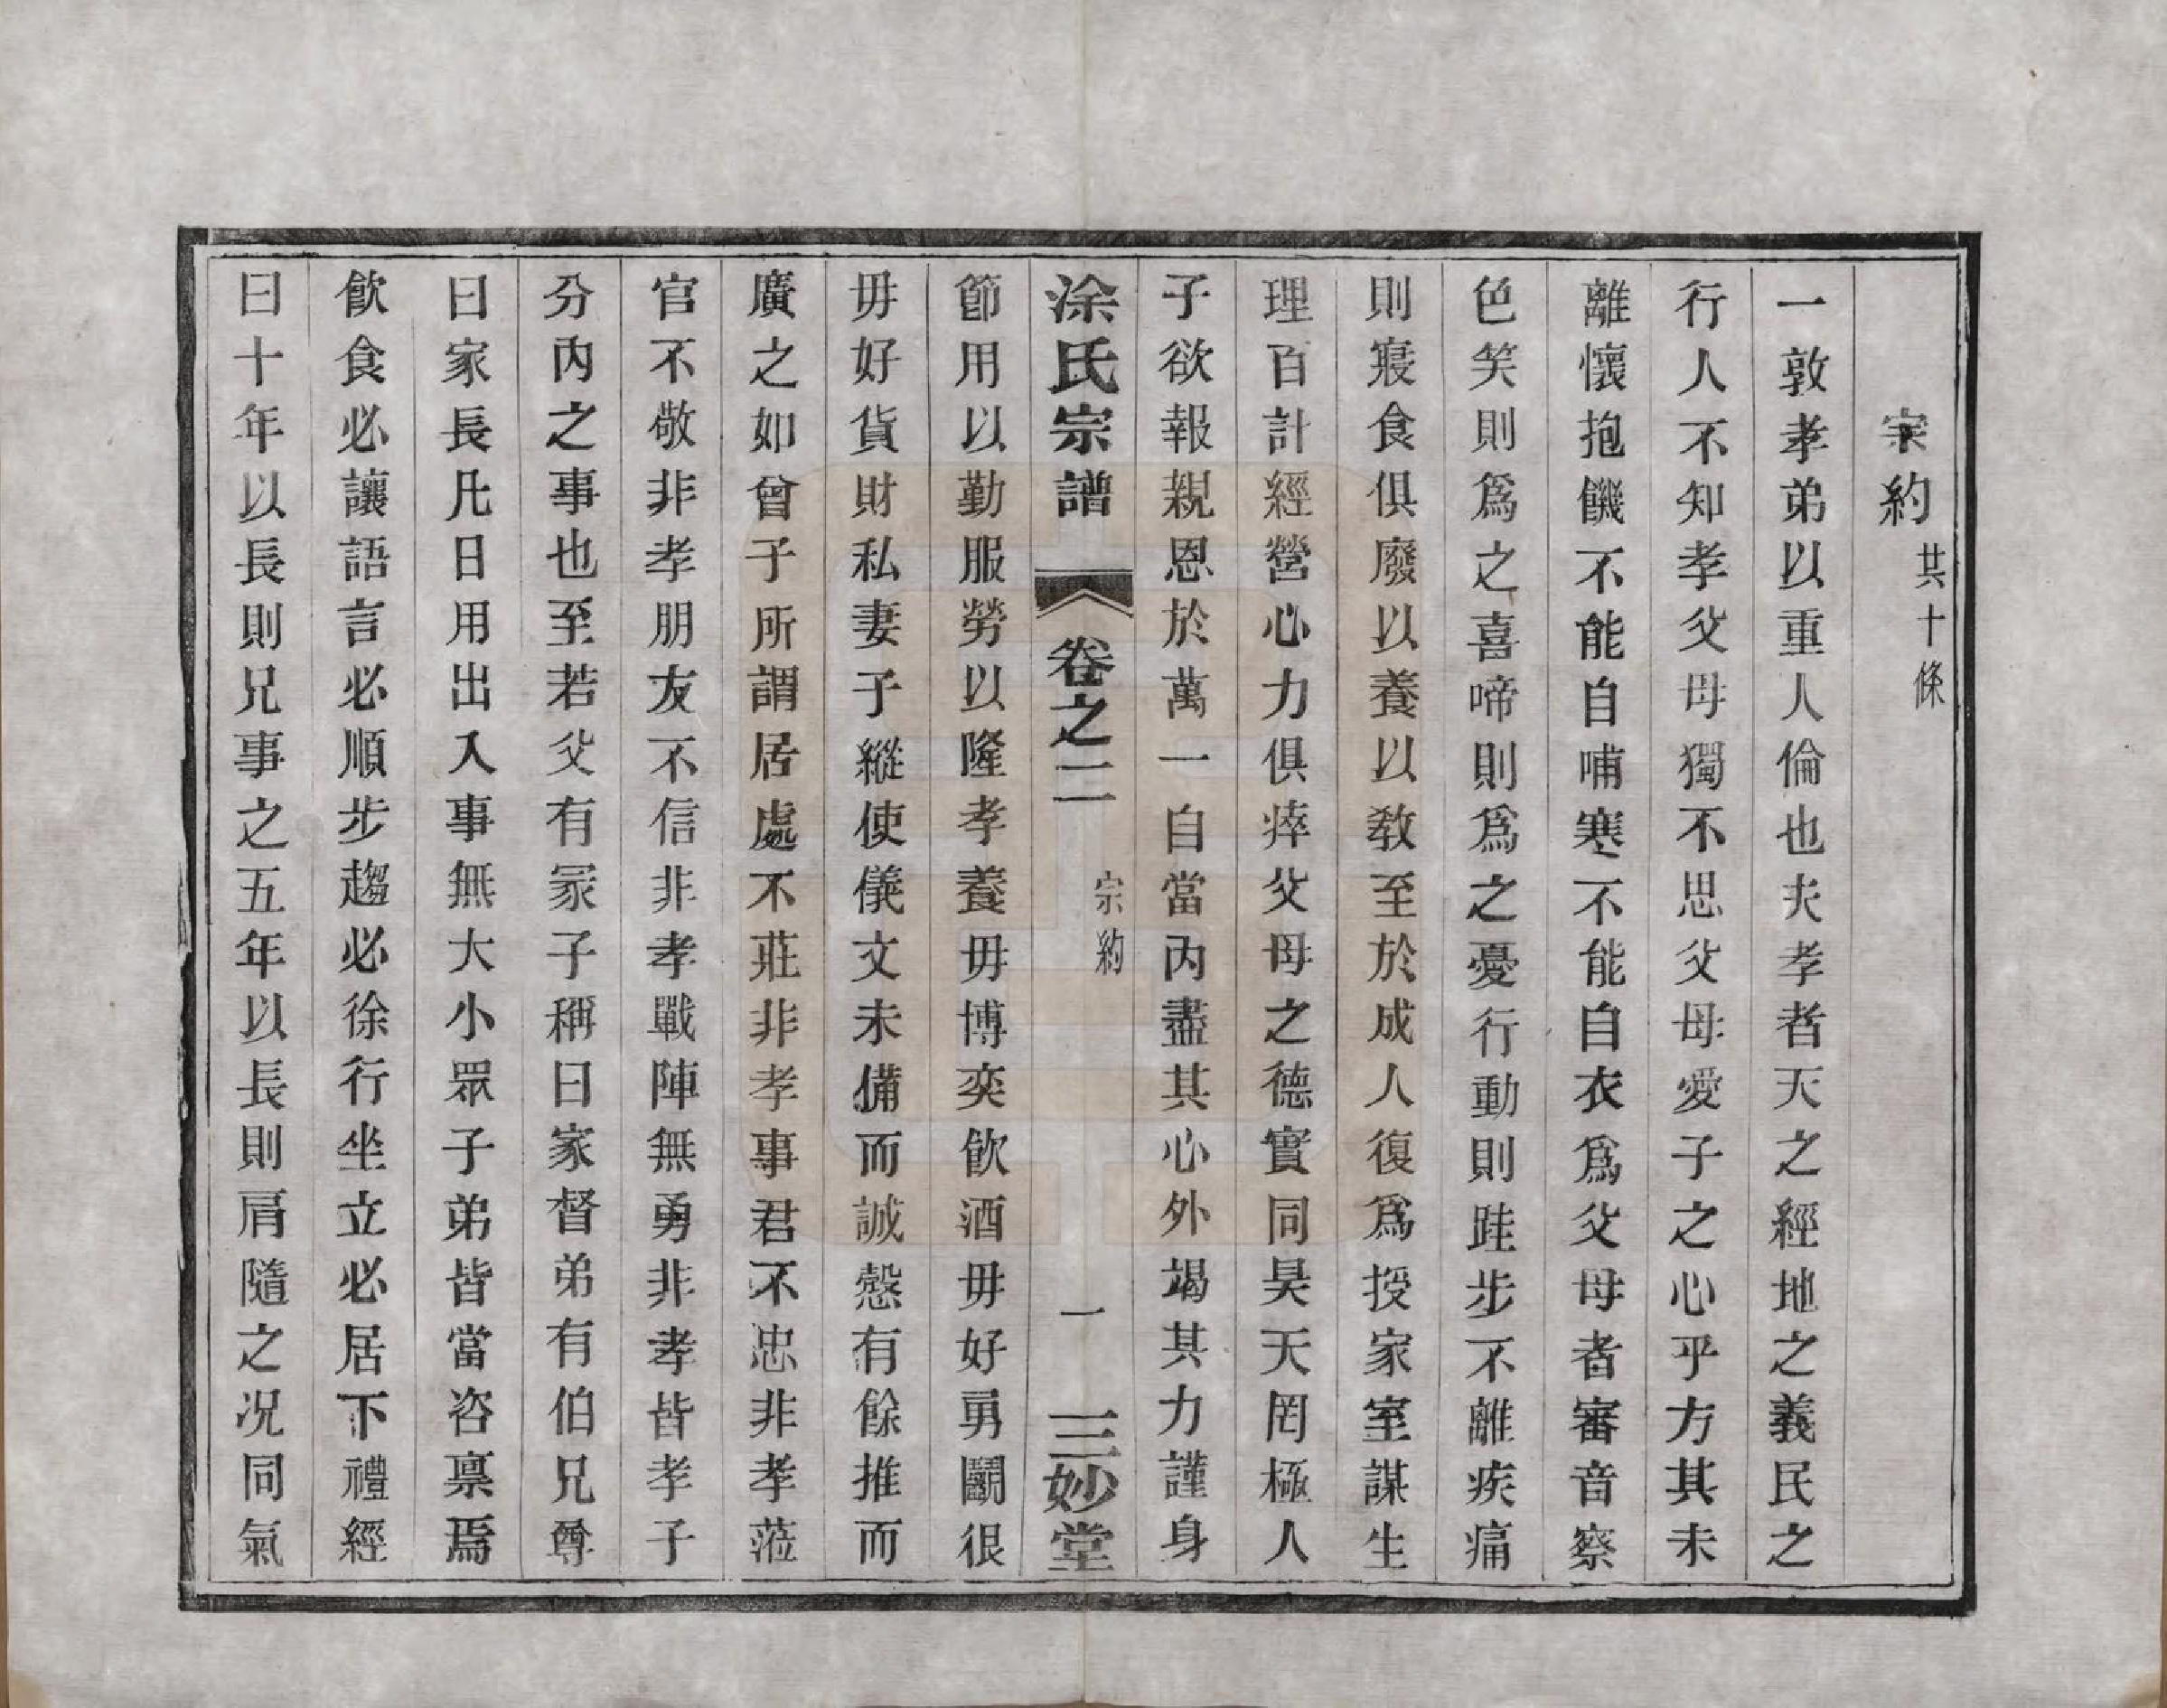 宗約共十條
一敦孝弟以重人倫也夫孝者天之經地之義民之
行人不知孝父母獨不思父母愛子之心乎方其未
離懷抱饑不能自哺寒不能自衣爲父母者審音察
色笑則爲之喜啼則爲之憂行動則跬步不離疾痛
則寢食俱廢以養以敎至於成人復爲授家室謀生
理百計經營心力俱瘁父母之德實同昊天罔極人
子欲報親恩於萬一自當內盡其心外竭其力謹身
涂氏宗譜 卷之二 宗約 一 三妙堂
節用以勤服勞以隆孝養毋博奕飮酒毋好勇鬬很
毋好貨財私妻子縱使儀文未備而誠慤有餘推而
廣之如曾子所謂居處不莊非孝事君不忠非孝蒞
官不敬非孝朋友不信非孝戰陣無勇非孝皆孝子
分內之事也至若父有冢子稱曰家督弟有伯兄尊
曰家長凡日用出入事無大小眾子弟皆當咨禀焉
飮食必讓語言必順步趨必徐行坐立必居下禮經
曰十年以長則兄事之五年以長則肩隨之况同氣